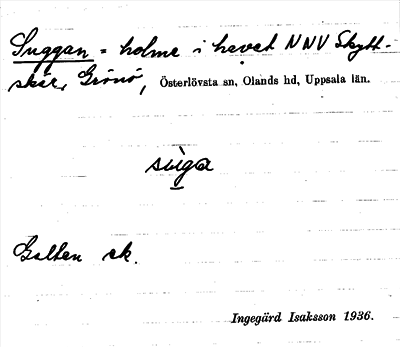 Suggan = holme i havet NNV Skytt-
skär, Grönö, Österlövsta sn, Olands hd, Uppsala län.
sùga
Galten ek.
Ingegärd Isaksson 1936.